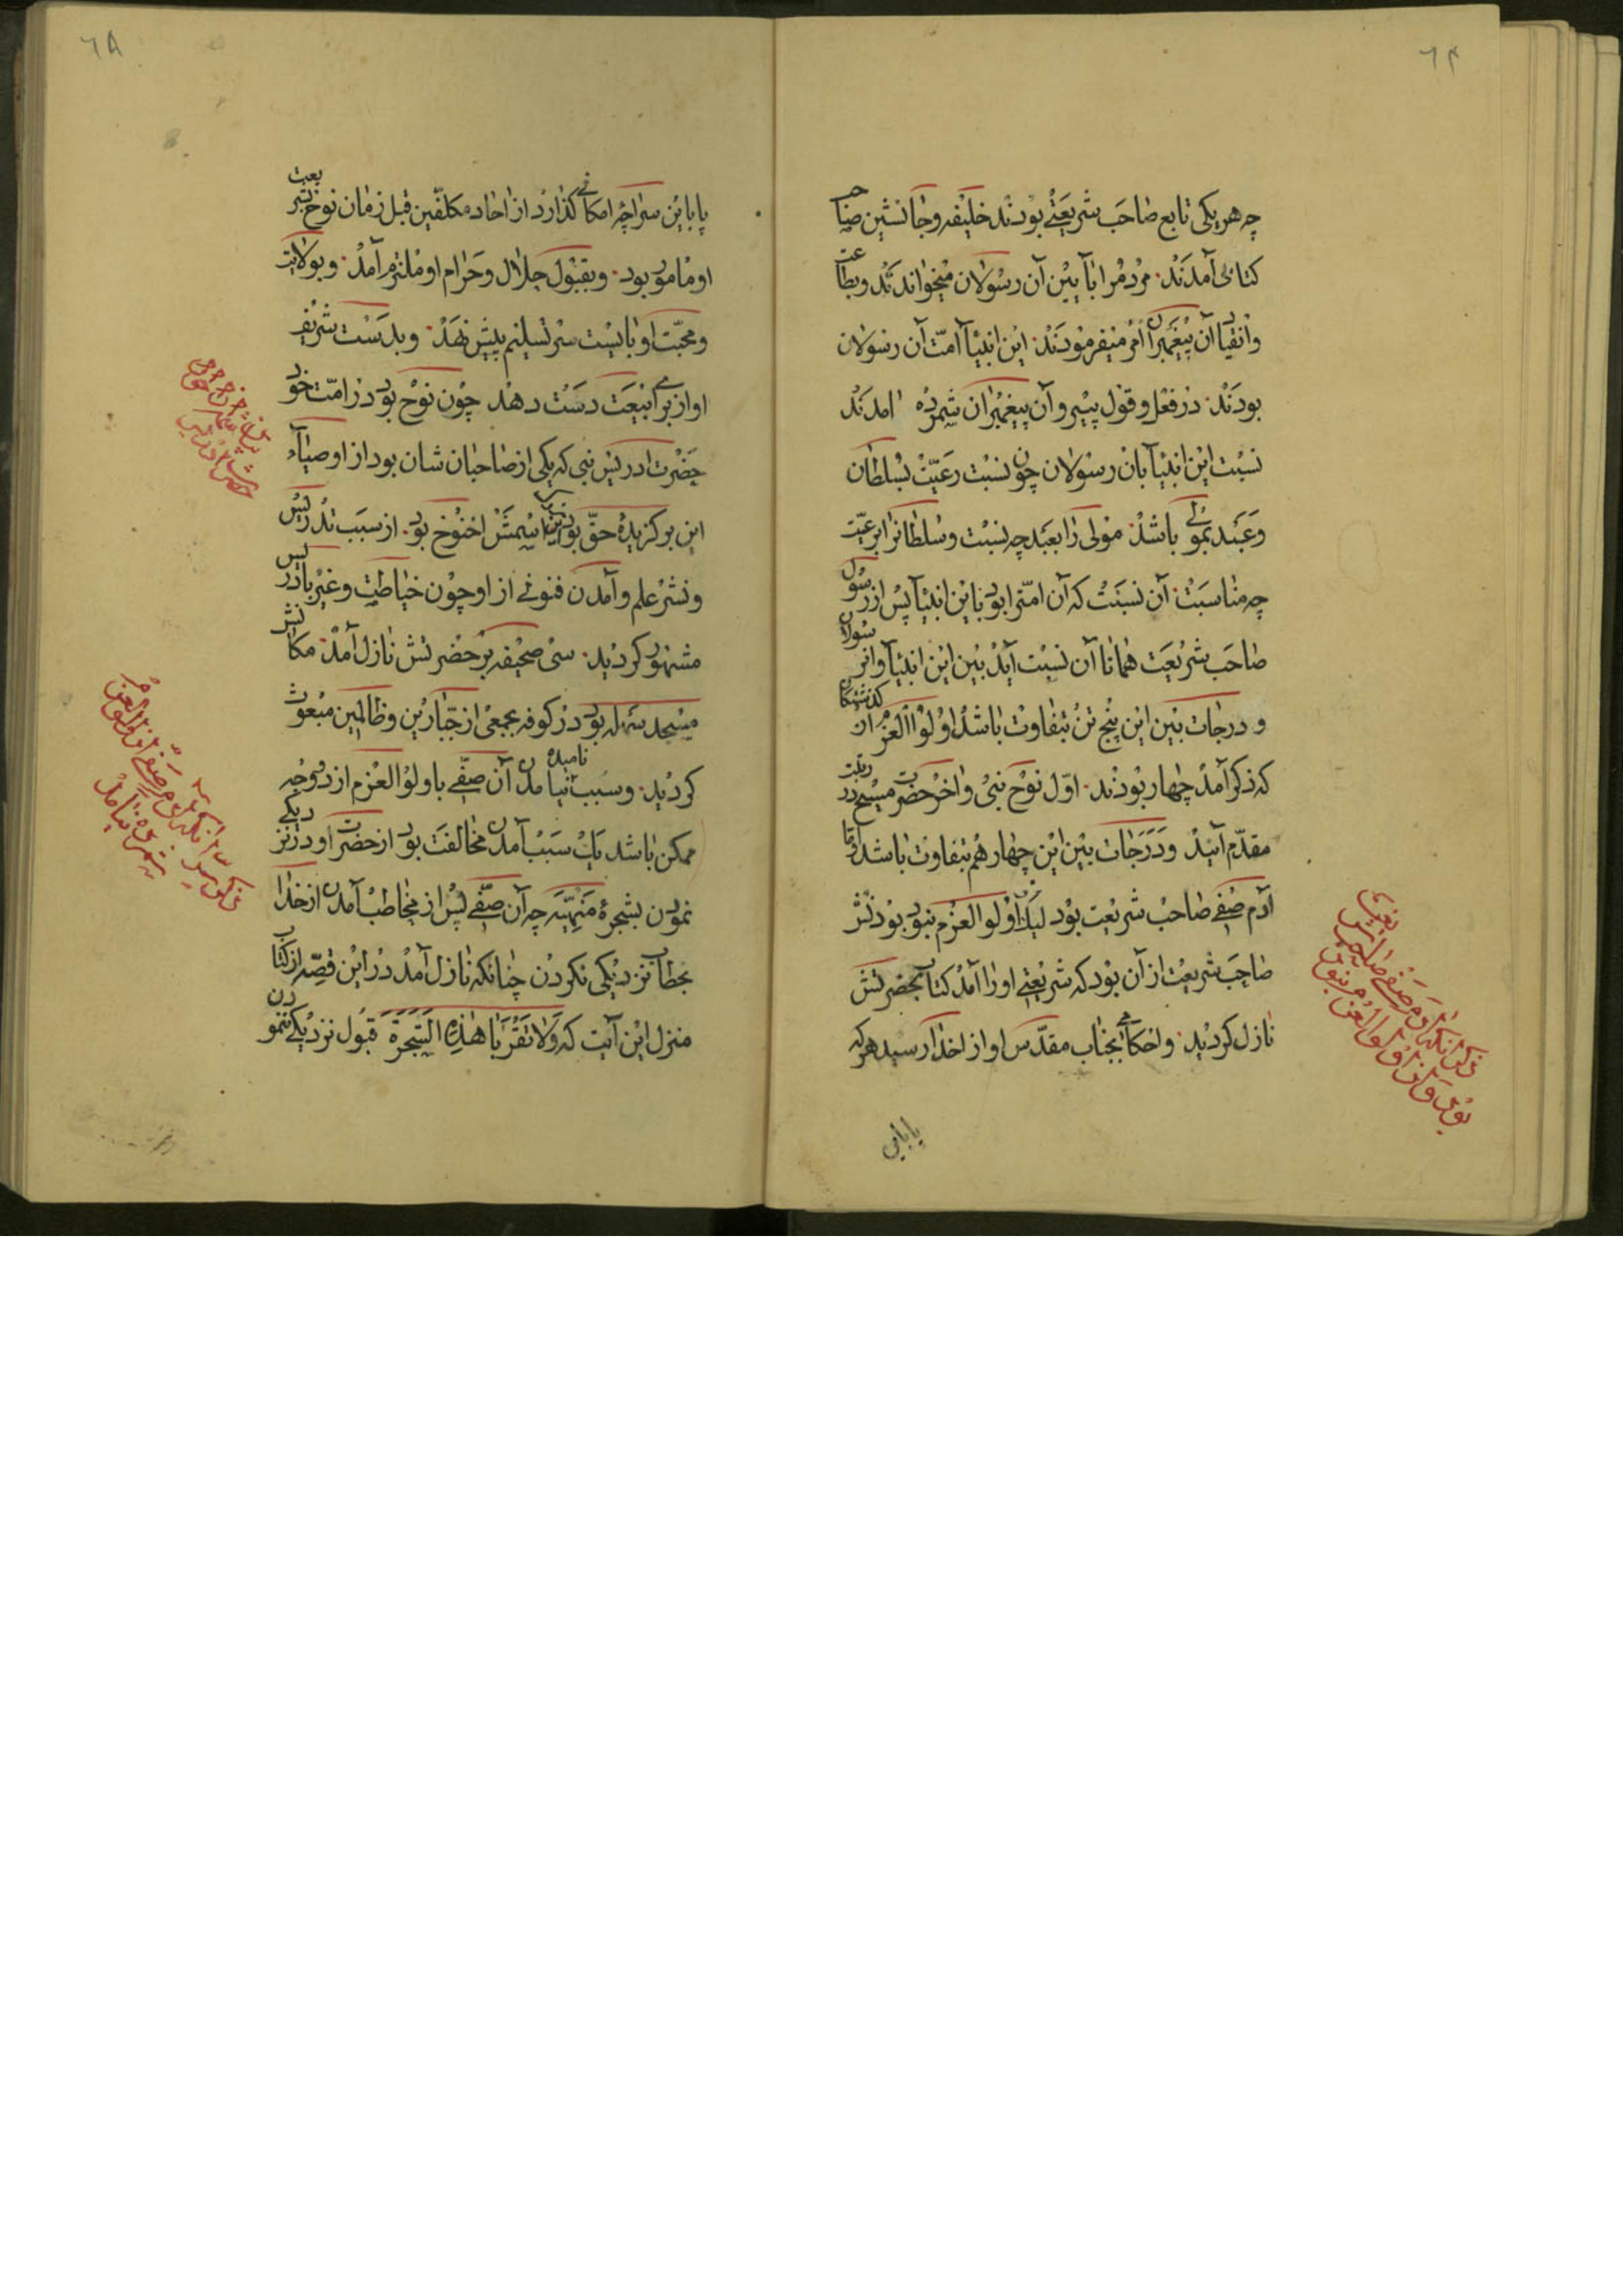 ٦٤
چه هریکی تابع صاحب شریعتی بودند خلیفه وجانشین صاحب
کتابی آمدند مردم را بآیین آن رسولان میخواندند وبطاعت
وانقیاد آن پیغمبران امر میفرمودند این انبیآ امّت آن رسولان
بودند در فعل و قول پیرو آن پیغمبران شمرده آمدند
نسبت این انبیآ بآن رسولان چون نسبت رعیّت بسلطان
وعبد بمولی باشد مولی را بعبد چه نسبت وسلطانرا برعیّت
چه مناسبت آن نسبت که آن امّترا بود باین انبیآ پس از رسول
صاحب شریعت همانا آن نسبت آید بین این انبیآ وآن رسولان
و درجات بین این پنج تن بتفاوت باشد اولوا العزم ان گذشتگان
که ذکر آمد چهار بودند اوّل نوح نبی وآخر حضرت مسیح در رتبت
مقدّم آیند ودرجات بین این چهار هم بتفاوت باشد امّا
آدم صفی صاحب شریعت بود لیکن اولوا العزم نبود بودنش
صاحب شریعت از آن بود که شریعتی اورا آمد کتاب بحضرتش
نازل گردید واحکامی بجناب مقدّس او از خدا رسید هرکه
یاباین
ذکر آنکه آدم صفی صاحب شریعت
بود و از اولوا العزم نبود
٦٥
پاباین سراچهٔ امکانی گذارد از احاد مکلّفین قبل زمان نوح ببعثت
او مأمور بود وبقبول حلال وحرام او ملتزم آمد وبولایت
ومحبّت او بایست سر تسلیم پیش نهد وبدست شریف
او از برای بیعت دست دهد چون نوح بود در امّت خود
حضرت ادریس نبی که یکی از صاحبان شان بود از اوصیآء
این برگزیدهٔ حقّ بود اسمش اخنوخ بود از سبب تدریس
ونشر علم وآمدن فنونی از او چون خیاطت وغیر بادریس
مشهور گردید سی صحیفه بر حضرتش نازل آمد مکانش
مسجد سهله بود در کوفه بجمعی از جبّارین وظالمین مبعوث
گردید وسبب نیامدن آن صفی باولوا العزم نامیده از دو وجه
ممکن باشد یک سبب آمدن مخالفت بود از حضرت او در نزدیکی
نمودن بشجرهٔ منهیّه چه آن صفی پس از مخاطب آمدن از خدا
بخطاب نزدیکی نکردن چنانکه نازل آمد در این قصّه از کتاب
منزل این آیت که وَلا تَقْرَبا هٰذِهِ الشَّجَرَةَ قبول نزدیکی ننمودن
ذکر سبب آنکه آدم صفی از اولوا العزم
شمرده نیامد